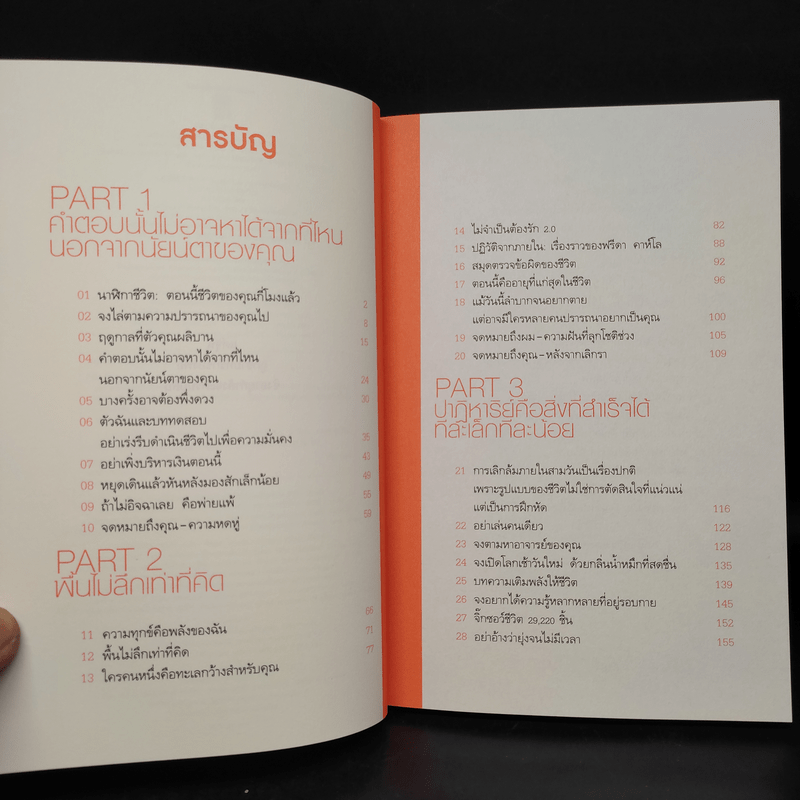 สารบัญ
PART 1
คำตอบนั้นไม่อาจหาได้จากที่ไหน
นอกจากนัยน์ตาของคุณ
01 นาฬิกาชีวิต: ตอนนี้ชีวิตของคุณกี่โมงแล้ว 2
02 จงไล่ตามความปรารถนาของคุณไป 8
03 ฤดูกาลที่ตัวคุณผลิบาน 15
04 คำตอบนั้นไม่อาจหาได้จากที่ไหน
นอกจากนัยน์ตาของคุณ 24
05 บางครั้งอาจต้องพึ่งดวง 30
06 ตัวฉันและบททดสอบ
อย่าเร่งรีบดำเนินชีวิตไปเพื่อความมั่นคง 35
07 อย่าเพิ่งบริหารเงินตอนนี้ 43
08 หยุดเดินแล้วหันหลังมองสักเล็กน้อย 49
09 ถ้าไม่อิจฉาเลย คือพ่ายแพ้ 55
10 จดหมายถึงคุณ–ความหดหู่ 59
PART 2
พื้นไม่ลึกเท่าที่คิด
11 ความทุกข์คือพลังของฉัน 66
12 พื้นไม่ลึกเท่าที่คิด 71
13 ใครคนหนึ่งคือทะเลกว้างสำหรับคุณ 77
14 ไม่จำเป็นต้องรัก 2.0 82
15 ปฏิวัติจากภายใน: เรื่องราวของฟรีดา คาห์โล 88
16 สมุดตรวจข้อผิดของชีวิต 92
17 ตอนนี้คืออายุที่แก่สุดในชีวิต 96
18 แม้วันนี้ลำบากจนอยากตาย
แต่อาจมีใครหลายคนปรารถนาอยากเป็นคุณ 100
19 จดหมายถึงผม–ความฝันที่ลุกโชติช่วง 105
20 จดหมายถึงคุณ–หลังจากเลิกรา 109
PART 3
ปาฏิหาริย์คือสิ่งที่สำเร็จได้
ทีละเล็กทีละน้อย
21 การเลิกล้มภายในสามวันเป็นเรื่องปกติ
เพราะรูปแบบของชีวิตไม่ใช่การตัดสินใจที่แน่วแน่
แต่เป็นการฝึกหัด 116
22 อย่าเล่นคนเดียว 122
23 จงตามหาอาจารย์ของคุณ 128
24 จงเปิดโลกเช้าวันใหม่ ด้วยกลิ่นน้ำหมึกที่สดชื่น 135
25 บทความเติมพลังให้ชีวิต 139
26 จงอยากได้ความรู้หลากหลายที่อยู่รอบกาย 145
27 จิ๊กซอว์ชีวิต 29,220 ชิ้น 152
28 อย่าอ้างว่ายุ่งจนไม่มีเวลา 155